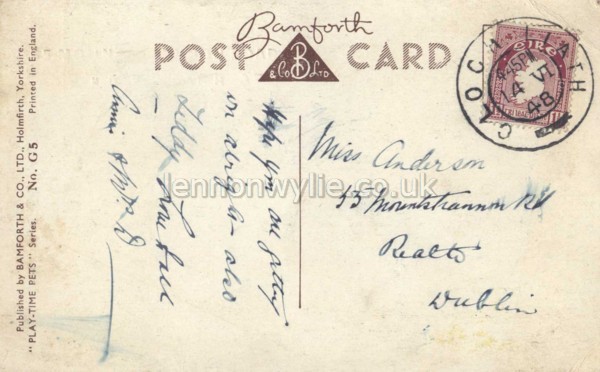 Bamforth
POST CARD
B
& Co LTD
Published by BAMFORTH & CO., LTD., Holmfirth, Yorkshire.
"PLAY-TIME PETS" Series. No. G5 Printed in England.
CLOCH LIATH
4.45PM
14 VI
48
éire
Hope you are getting
on alright also
Love
Annie
Miss Anderson
53 Mountshannon Rd
Dublin
lennonwylie.co.uk